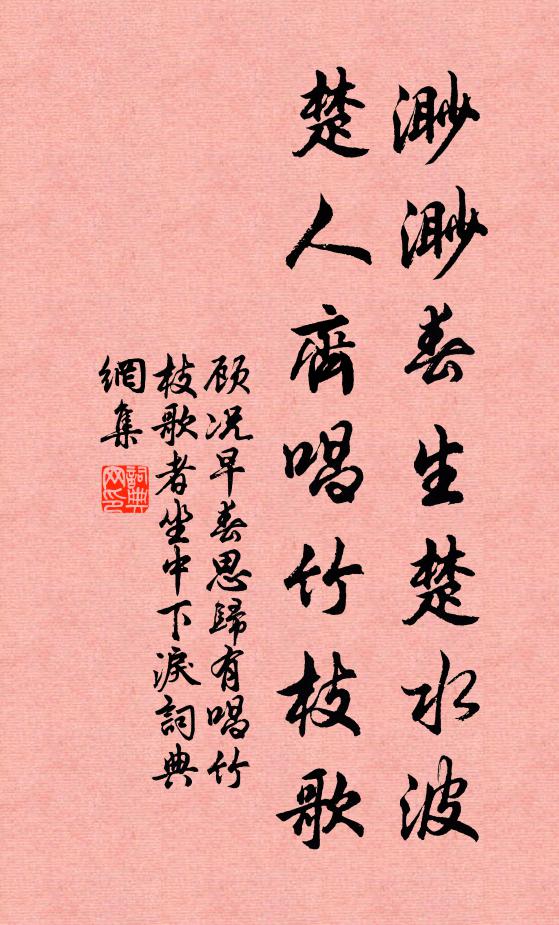 渺渺春生楚水波
楚人齊唱竹枝歌
顾况早春思歸有唱竹
枝歌者坐中下淚詞典
網集
詞典網印